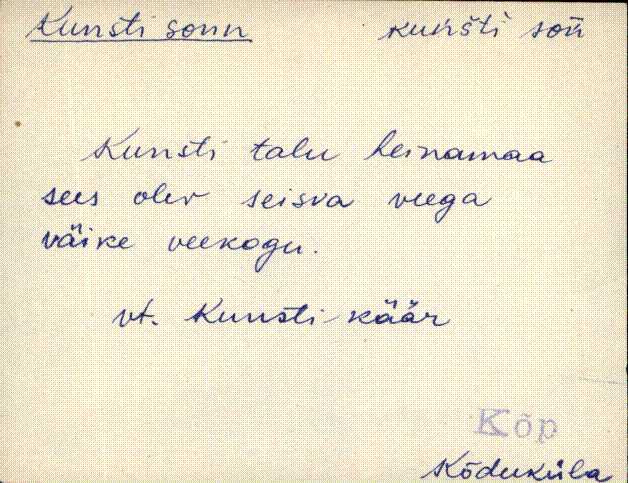 Kunsti sonn kuńšti son̄
Kunsti talu heinamaa
sees olev seisva veega
väike veekogu.
vt. Kunsti-käär
Kõp
Kõduküla